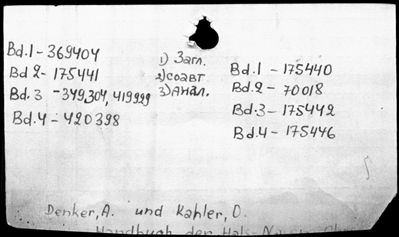 Bd.1 - 369404
Bd 2 - 175441
Bd.3 - 349,304, 419929
Bd.4 - 420398
1) Загл.
2) соавт
3) Анал.
Bd.1 - 175440
Bd.2 - 70018
Bd.3 - 175442
Bd.4 - 175446
Denker, A. und Kahler, O.
Handbuch der Hals-